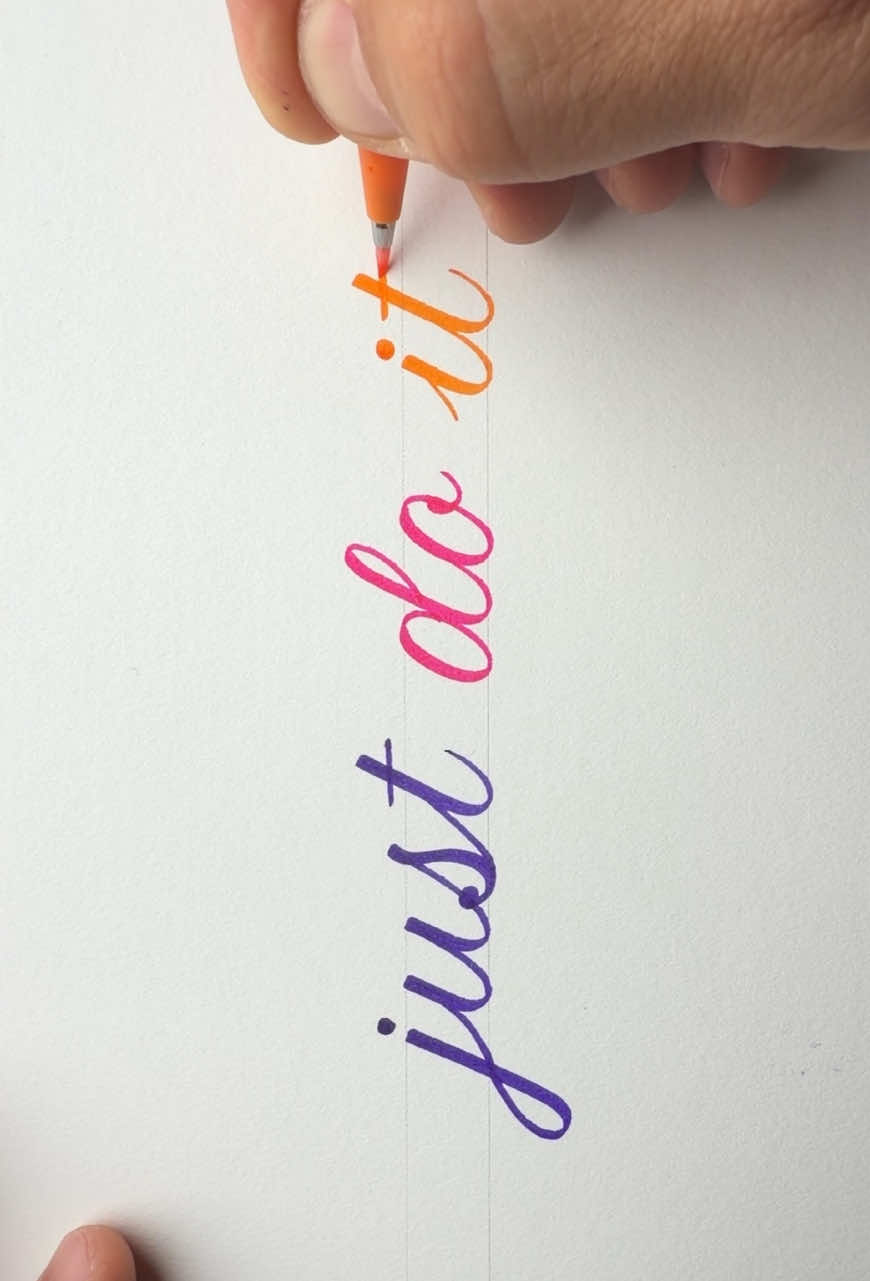 just do it